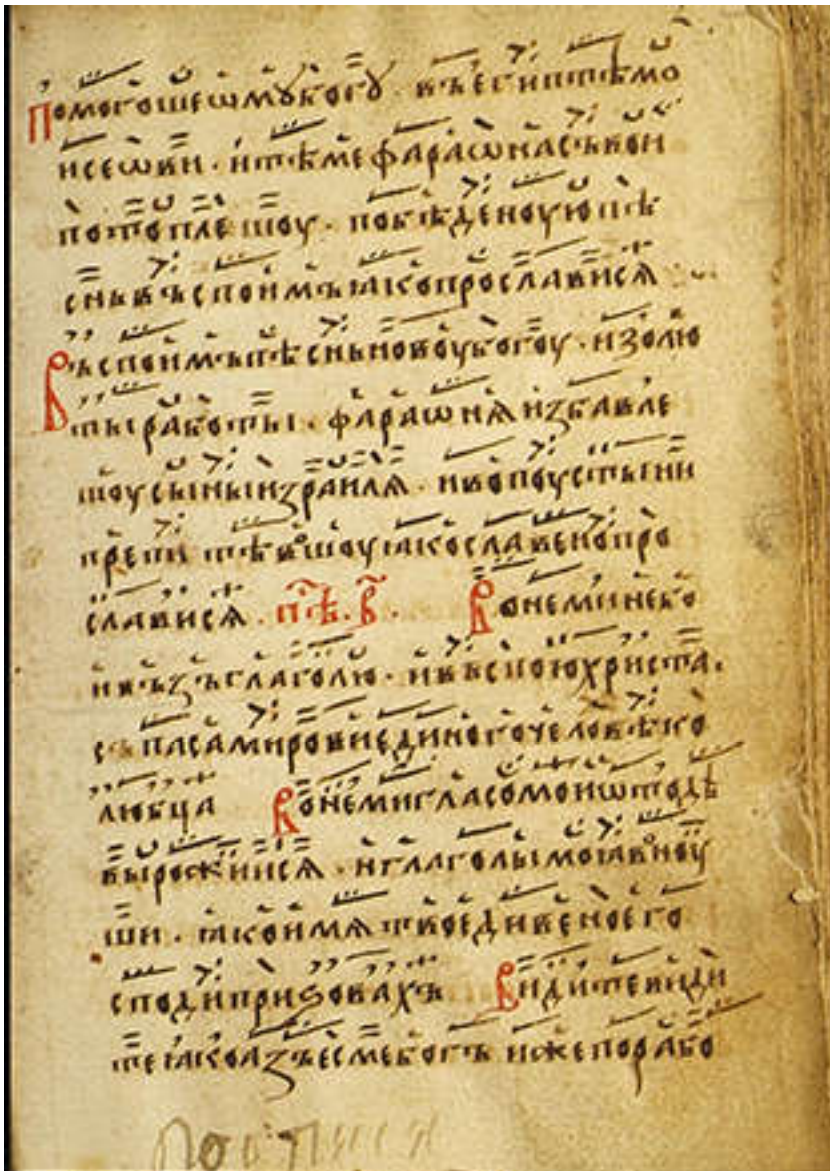 Помогошеѡмꙋбогꙋ · въегиптѣмо
исеѡви · итѣмефараѡнасъвои
потоплешоу · побѣденоуюпѣ
сньвъспоимъꙗкопрославися
Въспоимъпѣсньновоубогоу · изолю
тыработы · фараѡня избавле
шоусыныизраиля · ивопоустыни
препитѣвъшоуꙗкославенопро
славися · пѣ · в · Вонеминебо
ивъзъглаголю · ивъспоюхриста ·
съпасамировиединогочеловѣко
любца Вонемигласомоиѡтодѣ
вырожиися · иглаголымоꙗвоноу
ши · ꙗкоимятвоедивеноего
сподипризовахъ Видитевиди
теꙗкоазъесмебогъ ижепорабо